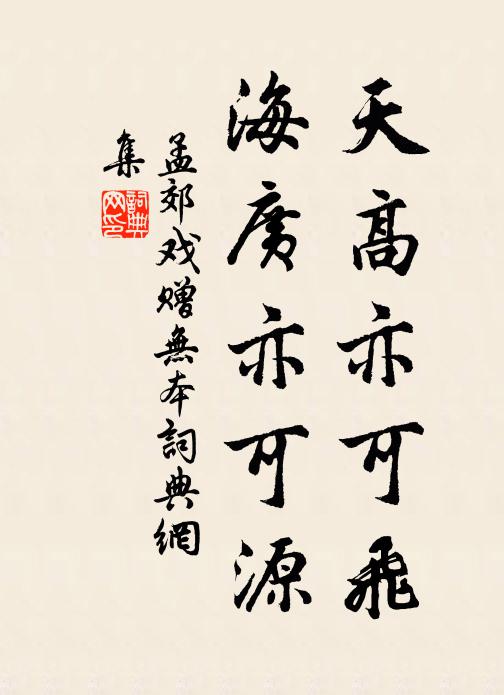 天高亦可飛
海廣亦可源
孟郊戏赠無本詞典網
集
詞典
网印